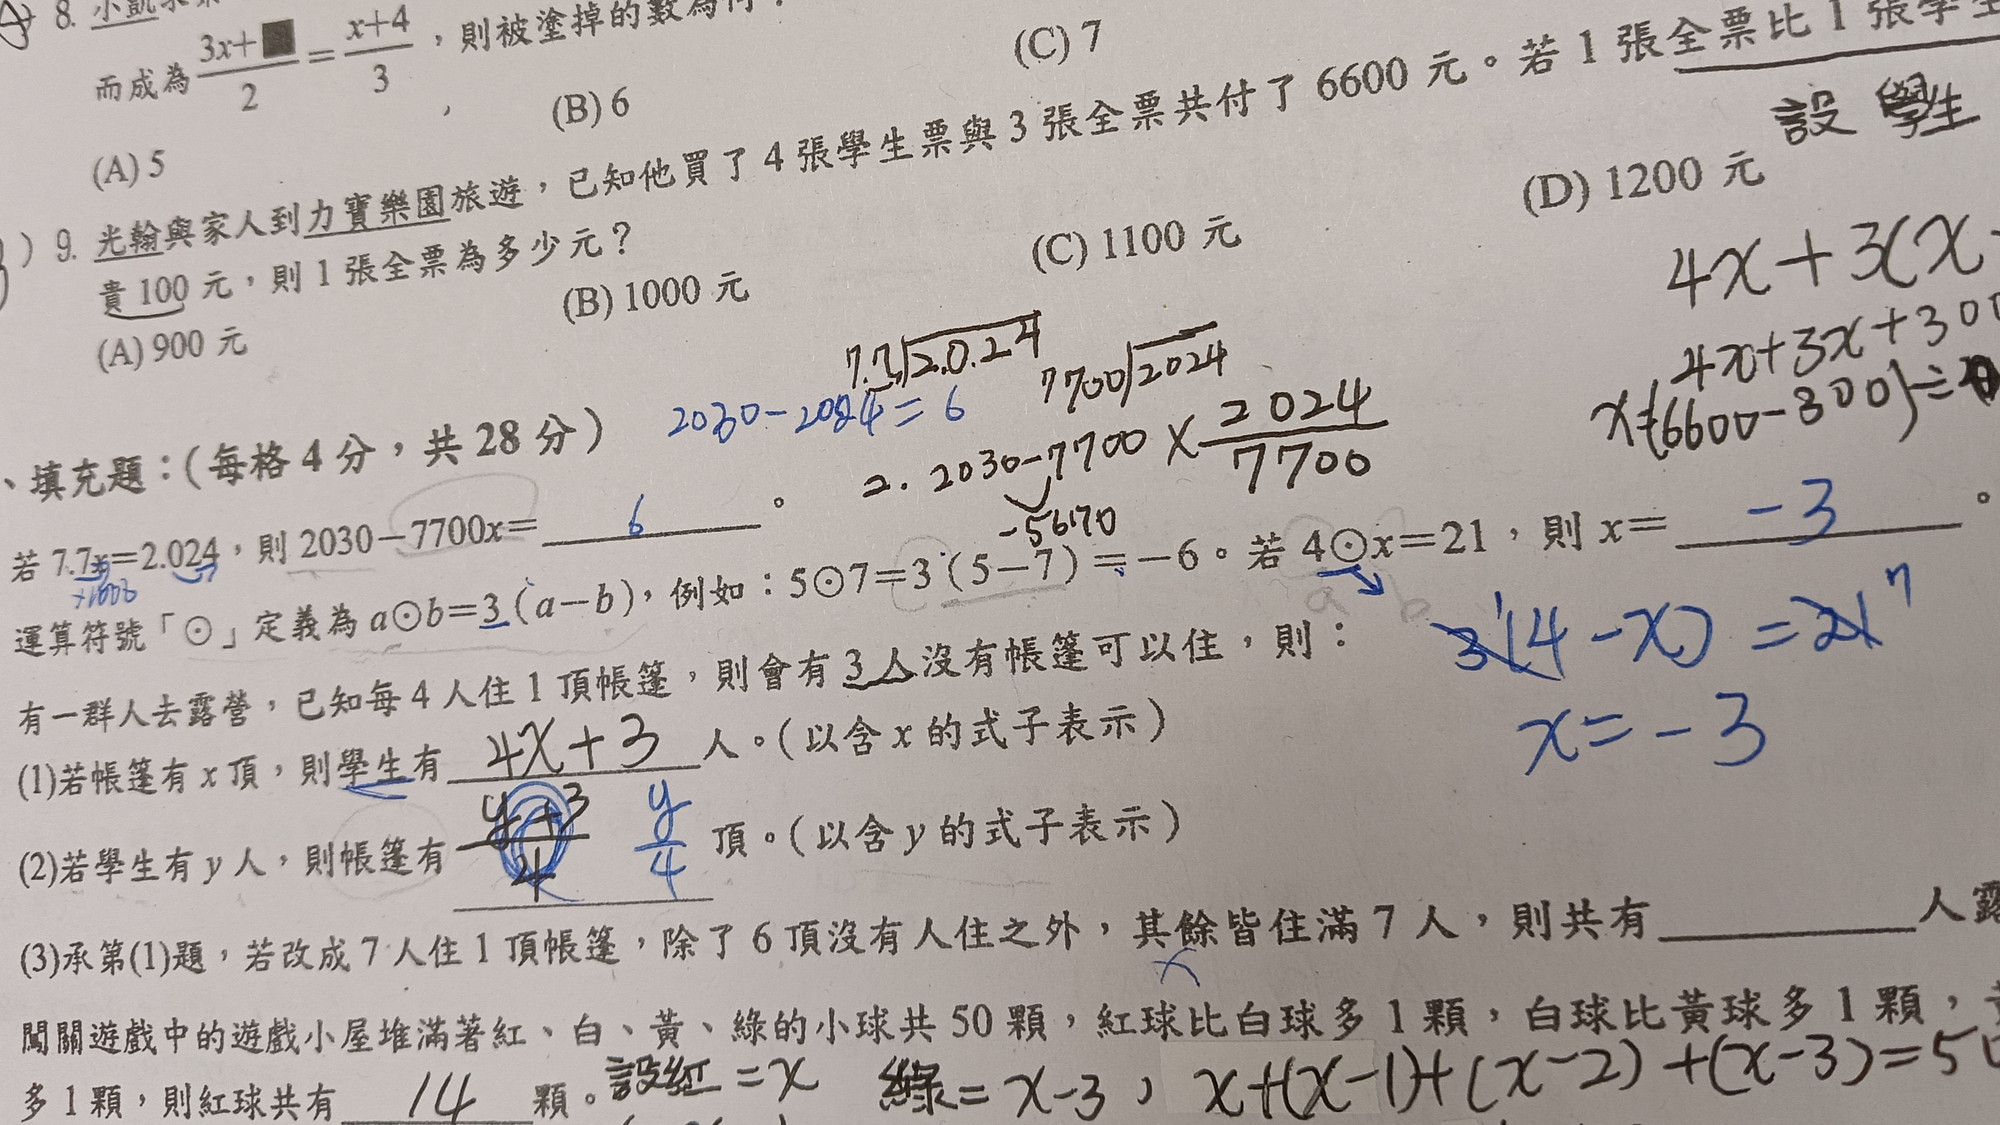 8. 小凱
而成為 (3x+■)/2 = (x+4)/3，則被塗掉的數為何？
(A) 5 (B) 6 (C) 7
9. 光翰與家人到力寶樂園旅遊，已知他買了 4 張學生票與 3 張全票共付了 6600 元。若 1 張全票比 1 張學生
貴 100 元，則 1 張全票為多少元？
(A) 900 元 (B) 1000 元 (C) 1100 元 (D) 1200 元
設 學生
4x+3(x
4x+3x+300
x=(6600-300)÷
7.7√2.0.24 7700√2024
2030-2024=6
2. 2030-7700×2024/7700
-5670
、填充題：（每格 4 分，共 28 分）
若 7.7x=2.024，則 2030-7700x= 6 。
×1000
運算符號「⊙」定義為 a⊙b=3(a-b)，例如：5⊙7=3(5-7)=-6。若 4⊙x=21，則 x= -3 。
a b
3(4-x)=21
1 7
x=-3
有一群人去露營，已知每 4 人住 1 頂帳篷，則會有 3 人沒有帳篷可以住，則：
(1)若帳篷有 x 頂，則學生有 4x+3 人。（以含 x 的式子表示）
(2)若學生有 y 人，則帳篷有 (y+3)/4 y/4 頂。（以含 y 的式子表示）
(3)承第(1)題，若改成 7 人住 1 頂帳篷，除了 6 頂沒有人住之外，其餘皆住滿 7 人，則共有 人露
x
闖關遊戲中的遊戲小屋堆滿著紅、白、黃、綠的小球共 50 顆，紅球比白球多 1 顆，白球比黃球多 1 顆，
多 1 顆，則紅球共有 14 顆。
設紅=x 綠=x-3，x+(x-1)+(x-2)+(x-3)=50